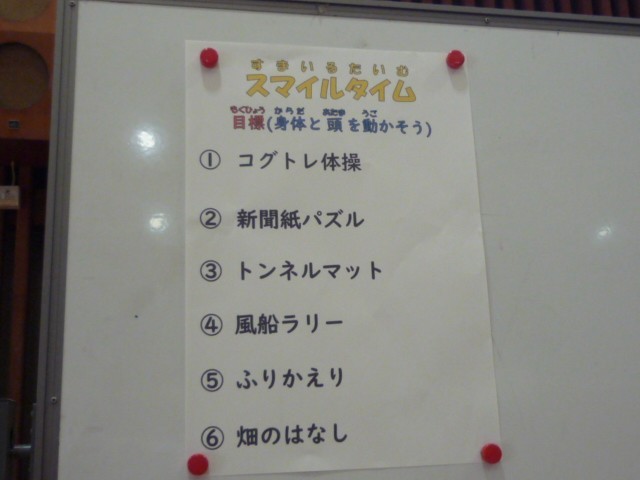 すまいるたいむ
スマイルタイム
もくひょう からだ あたま うご
目標(身体と頭を動かそう)
① コグトレ体操
② 新聞紙パズル
③ トンネルマット
④ 風船ラリー
⑤ ふりかえり
⑥ 畑のはなし